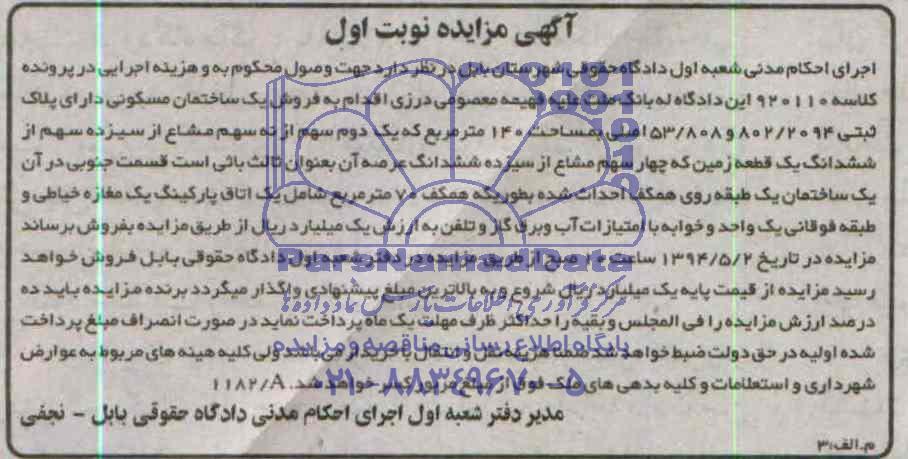 آگهی مزایده نوبت اول
اجرای احکام مدنی شعبه اول دادگاه حقوقی شهرستان بابل در نظر دارد جهت وصول محکوم به و هزینه اجرایی در پرونده
کلاسه ۹۲۰۱۱۰ این دادگاه له بانک ملت علیه فهیمه معصومی درزی اقدام به فروش یک ساختمان مسکونی دارای پلاک
ثبتی ۸۰۲/۲۰۹۴ و ۵۳/۸۰۸ اصلی بمساحت ۱۴۰ مترمربع که یک دوم سهم از نه سهم مشاع از سیزده سهم از
ششدانگ یک قطعه زمین که چهار سهم مشاع از سیزده ششدانگ عرصه آن بعنوان ثالث باثی است قسمت جنوبی در آن
یک ساختمان یک طبقه روی همکف احداث شده بطوریکه همکف ۷۰ مترمربع شامل یک اتاق پارکینگ یک مغازه خیاطی و
طبقه فوقانی یک واحد و خوابه با امتیازات آب و برق گاز و تلفن به ارزش یک میلیارد ریال از طریق مزایده بفروش برساند
مزایده در تاریخ ۱۳۹۴/۵/۲ ساعت ۱۰ صبح از طریق مزایده در دفتر شعبه اول دادگاه حقوقی بابل فروش خواهد
رسید مزایده از قیمت پایه یک میلیارد ریال شروع و به بالاترین مبلغ پیشنهادی واگذار میگردد برنده مزایده باید ده
درصد ارزش مزایده را فی المجلس و بقیه را حداکثر ظرف مهلت یک ماه پرداخت نماید در صورت انصراف مبلغ پرداخت
شده اولیه در حق دولت ضبط خواهد شد ضمنا هزینه نقل و انتقال با خریدار می باشد ولی کلیه هینه های مربوط به عوارض
شهرداری و استعلامات و کلیه بدهی های ملک فوق از مبلغ مزبور کسر خواهد شد. ۱۱۸۲/A
مدیر دفتر شعبه اول اجرای احکام مدنی دادگاه حقوقی بابل - نجفی
م.الف:۳
ParsNamadData
مرکز فرآوری اطلاعات پارس نماد داده ها
پایگاه اطلاع رسانی مناقصه و مزایده
۰۲۱-۸۸۳۴۹۶۷۰-۵